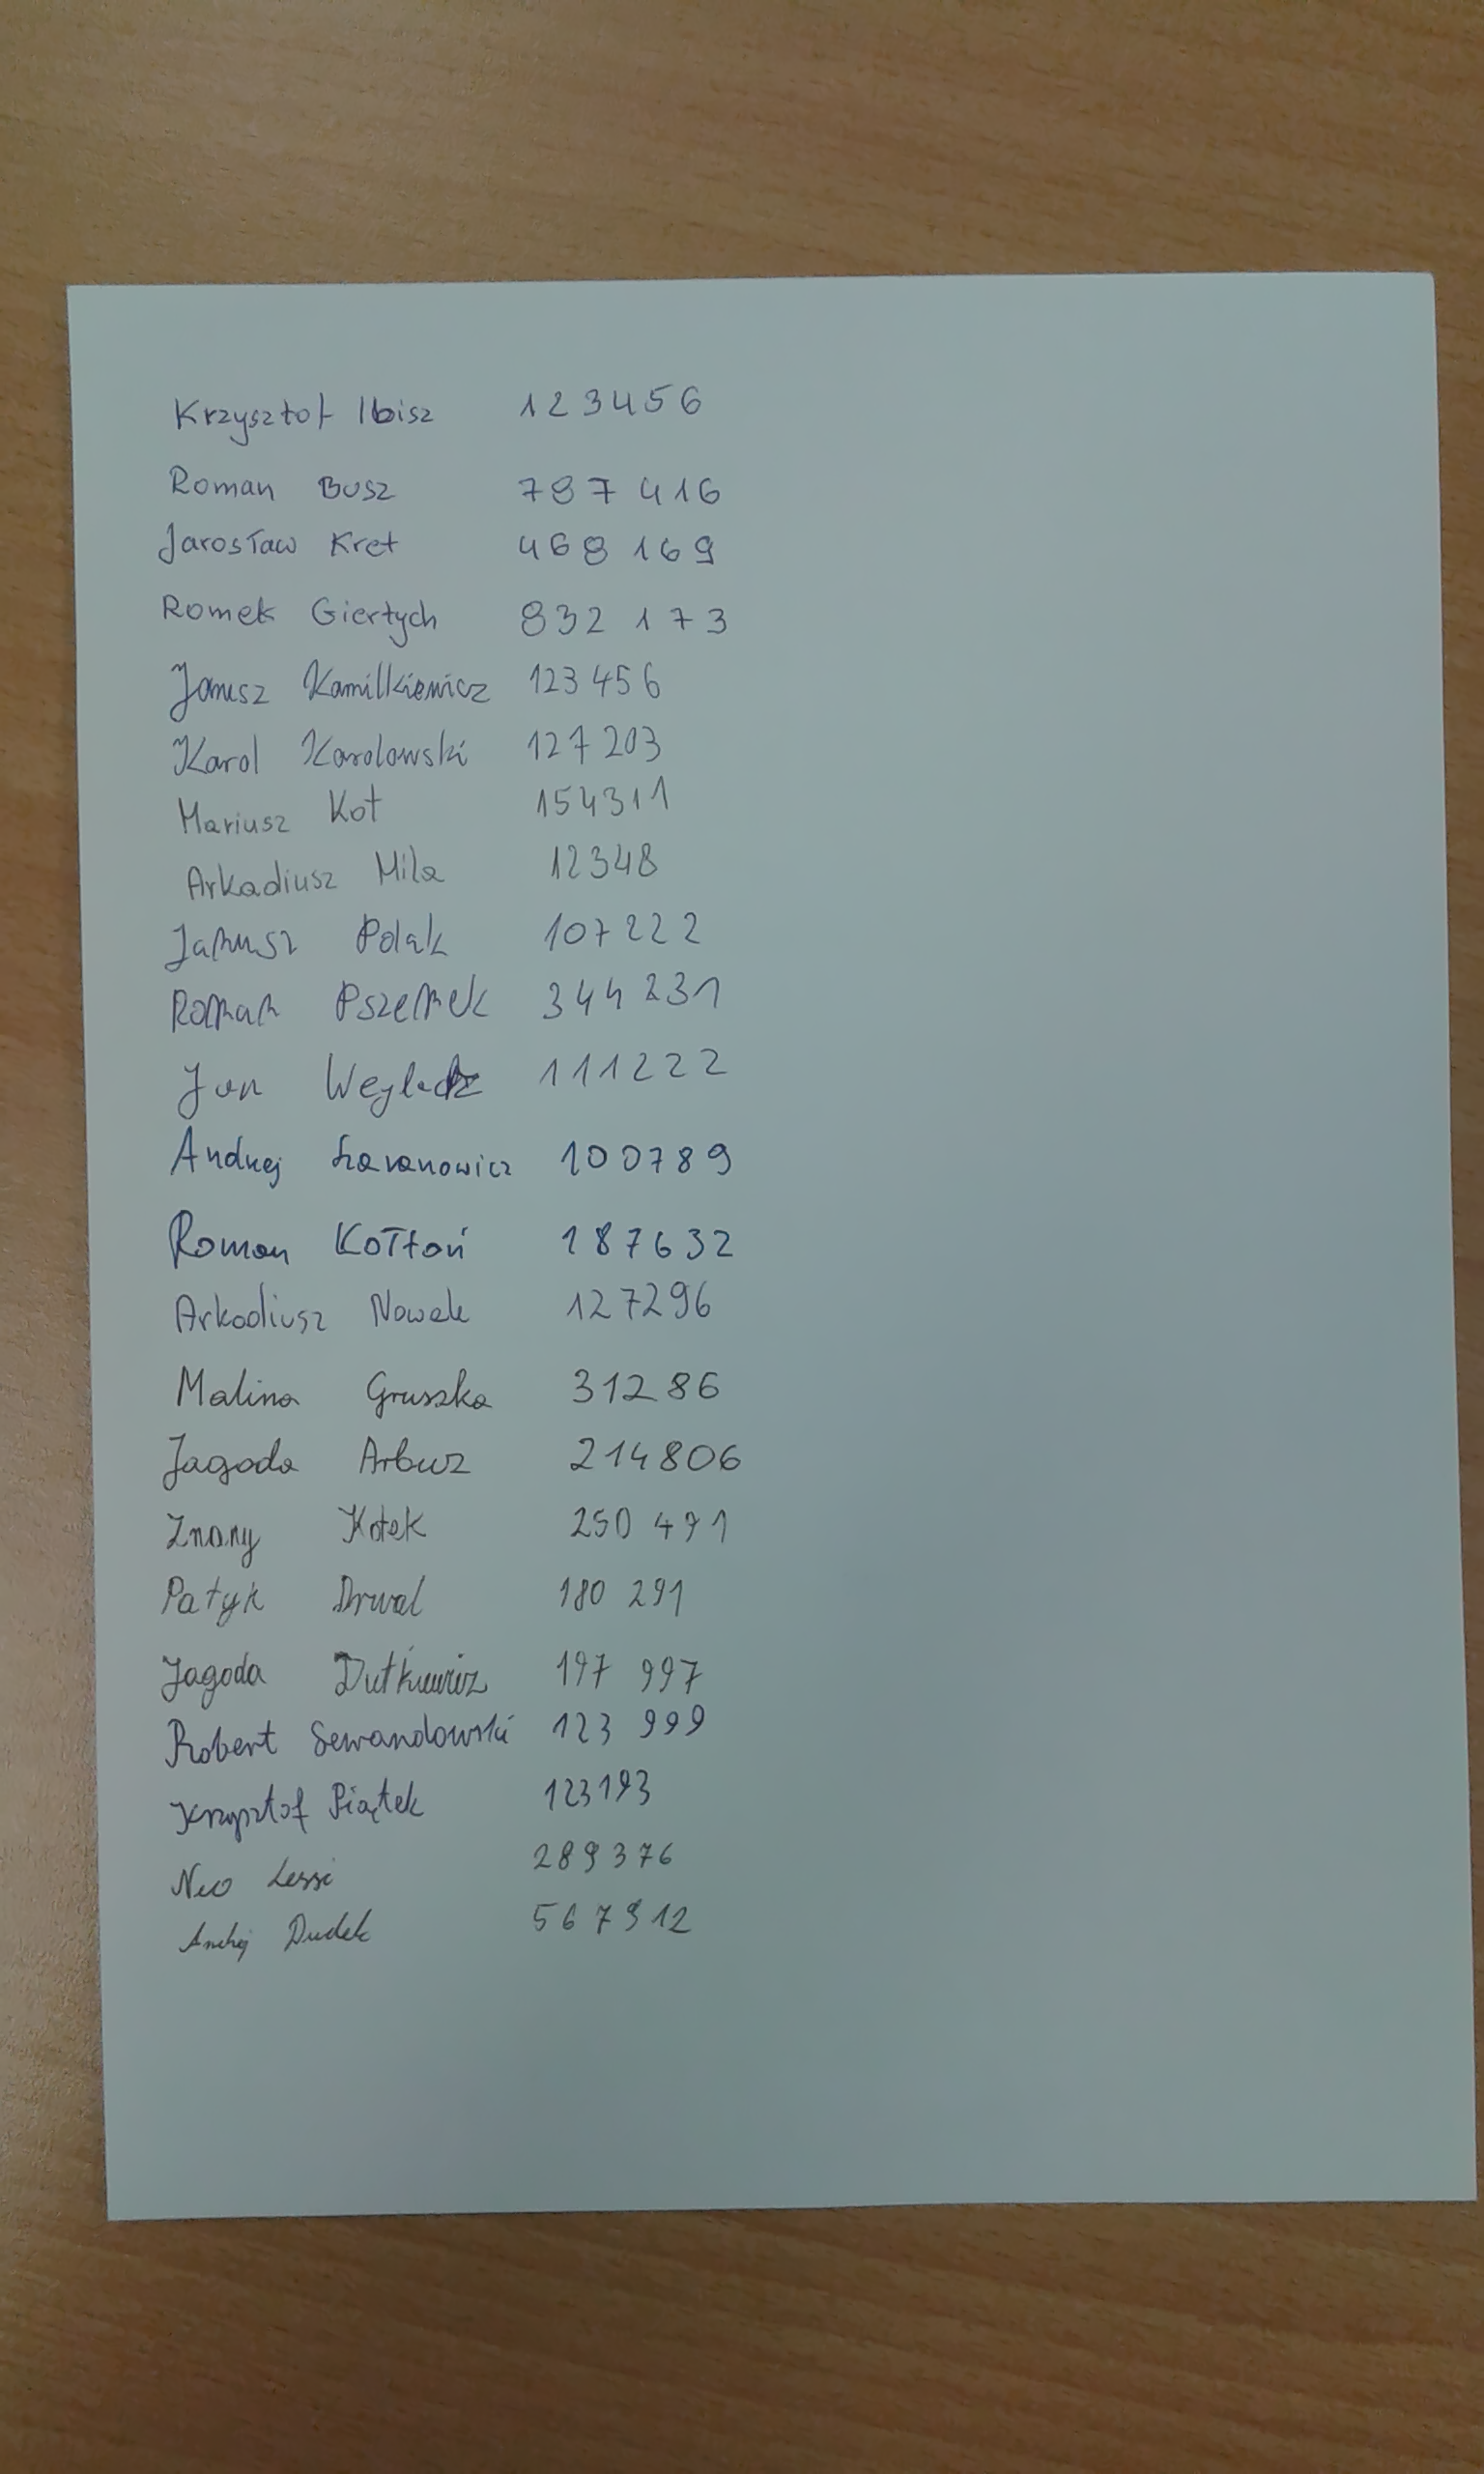 Krzysztof Ibisz 123456
Roman Busz 787416
Jarosław Kret 468 169
Romek Giertych 832 173
Janusz Kamilkiewicz 123 456
Karol Karolowski 127 203
Mariusz Kot 154311
Arkadiusz Mila 12348
Janusz Polak 107222
Roman Pszemek 344 231
Jan 111222
Andrzej 100789
Roman Kołtoń 187632
Arkadiusz Nowak 127296
Malina Gruszka 31286
Jagoda Arbuz 214806
Znany Kotek 250 491
Patyk Drwal 180 291
Jagoda Dutkiewicz 197 997
Robert Sewandowski 123 999
Krzysztof Piątek 123193
Neo Lessi 289376
Andrzej Dudek 567912